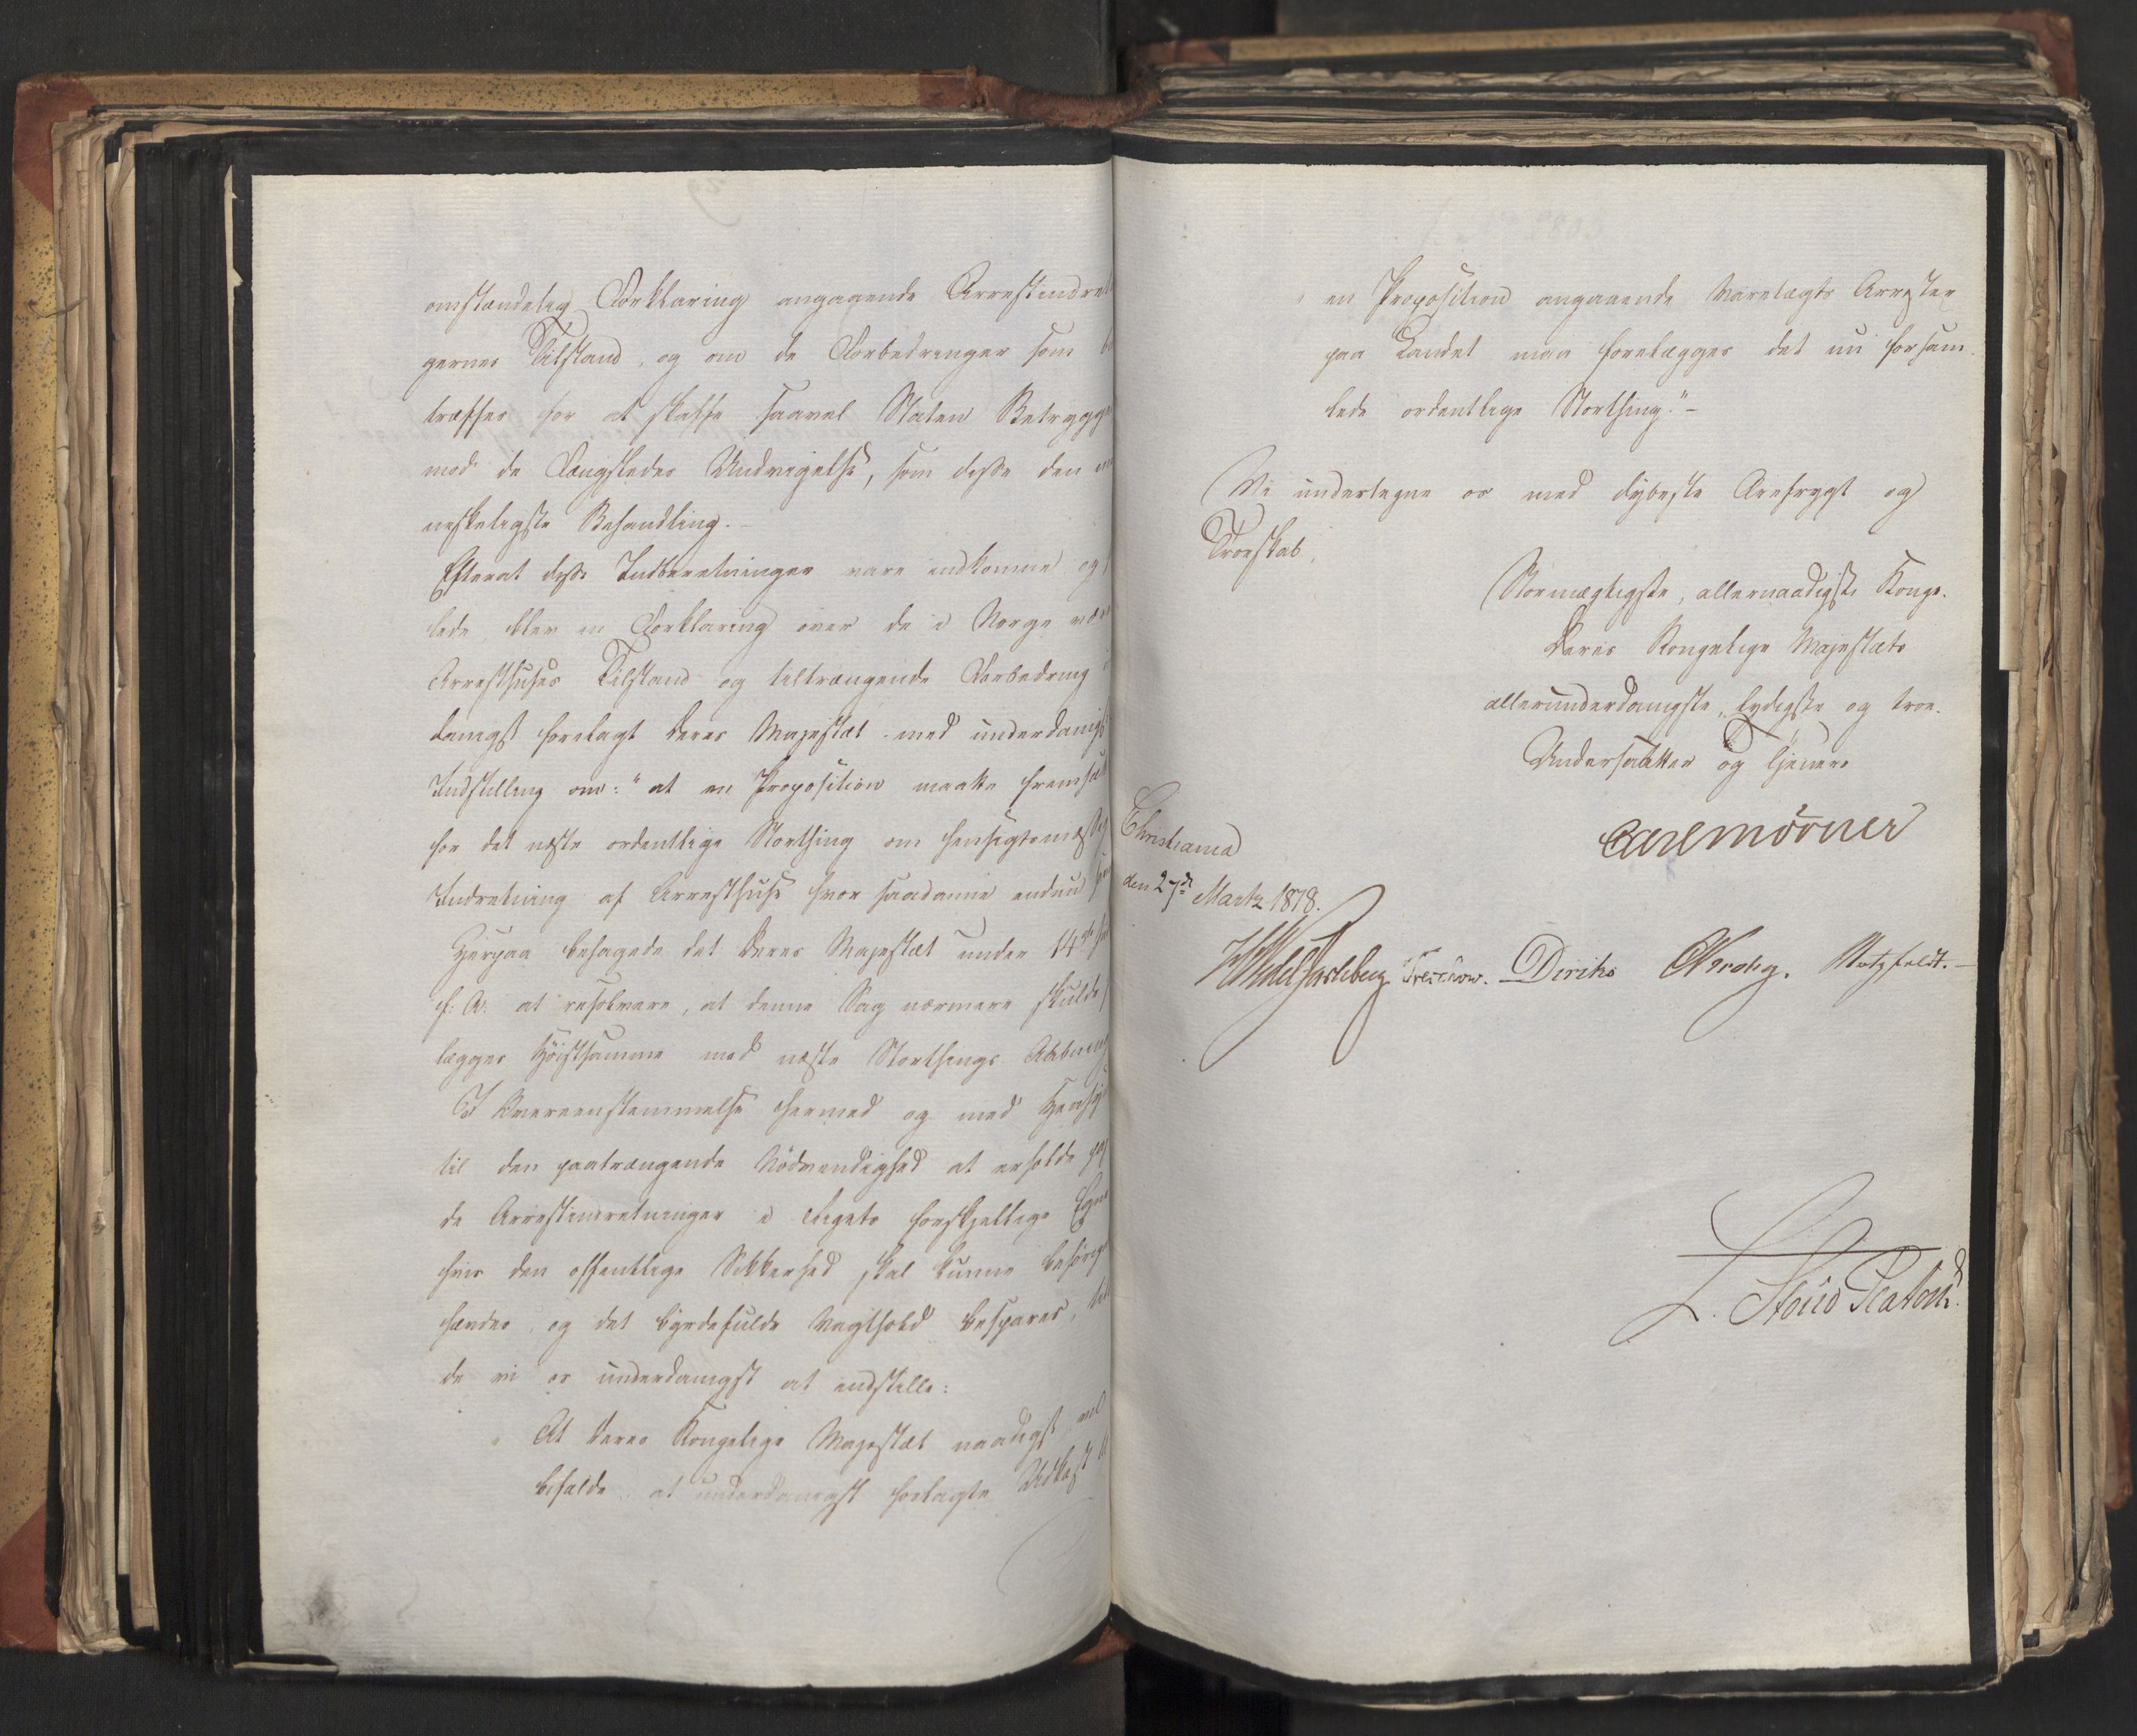 omstændelig Forklaring angaaende Arrestindret
gernes Tilstand, og om de Forbedringer som
træffes for at skaffe saavel Staten Betrygge
mod de Fængsledes Undvigelse, som disse den
neskeligste Behandling.-
Efterat disse Indberetninger vare indkomne og
lede, blev en Forklaring over de i Norge vær
Arresthuses Tilstand og tiltrængende Forbedring
danigst forelagt Deres Majestæt med underdanigst
Indstilling om: "at en Proposition maatte fremsæt
for det næste ordentlige Storthing om hensigtsmæssig
Indretning af Arresthuse hvor saadanne endnu
Herpaa behagede det Deres Majestæt under 14de
f: A: at resolvere, at denne Sag nærmere skulde
lægges Høistsamme med næste Storthings Aabning
I Overeensstemmelse hermed og med Hensyn
til den paatrængende Nödvendighed at erholde
de Arrestindretninger i Rigets forskjellige Egne
hvis den offentlige Sikkerhed skal kunne behørig
hændes, og det byrdefulde Vagthold bespares,
de vi os underdanigst at indstille:
"At Deres Kongelige Majestæt naadigst vil
bifalde at underdanigst forlagte Udkast
en Proposition angaaende Varetægts Arrester
paa Landet maa forelægges det nu forsam-
lede ordentlige Storthing."-
Vi undertegne os med dybeste Ærefrygt og
Troeskab,
Stormægtigste, allernaadigste Konge.
Deres Kongelige Majestæts
allerunderdanigste, lydigste og troe.
Undersaatter og tjenere
Carl Mörner
Christiania
den 27de Martz 1818.
HWedelJarlsberg Treschow. Diriks CKrohg. Motzfeldt.-
L. Stoud Platou.